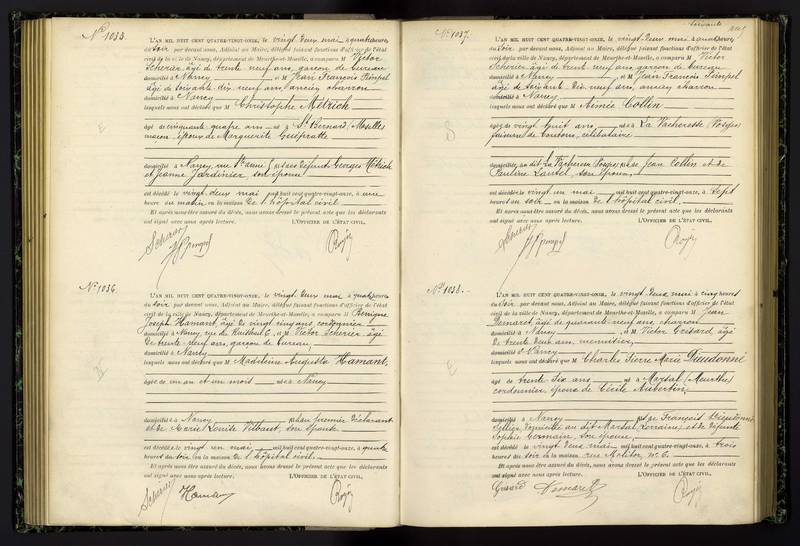 N° 1035.
L'AN MIL HUIT CENT QUATRE-VINGT-ONZE, le vingt-deux mai, à quatre heures
du soir par devant nous, Adjoint au Maire, délégué faisant fonctions d'officier de l'état
civil de la ville de Nancy, département de Meurthe-et-Moselle, a comparu M Victor
Scherier, âgé de trente neuf ans, garçon de bureau
domicilié à Nancy et M Jean François Pimpel
âgé de soixante dix neuf ans, ancien charron
domicilié à Nancy
lesquels nous ont déclaré que M Christophe Métrich
âgé de cinquante quatre ans né à St Bernard (Moselle)
maçon époux de Marguerite
domicilié à Nancy, rue Ste anne, fils des défunts Georges Métrich
et Jeanne Jardinier, son épouse
est décédé le vingt-deux mai mil huit cent quatre-vingt-onze, à une
heure du matin en la maison de l'hôpital civil.
Et après nous être assuré du décès, nous avons dressé le présent acte que les déclarants
ont signé avec nous après lecture. L'OFFICIER DE L'ÉTAT CIVIL,
N° 1036.
L'AN MIL HUIT CENT QUATRE-VINGT-ONZE, le vingt-deux mai, à quatre heures
du soir, par devant nous, Adjoint au Maire, délégué faisant fonctions d'officier de l'état
civil de la ville de Nancy, département de Meurthe-et-Moselle, a comparu M Bénigne
Joseph Hamant, âgé de vingt cinq ans cordonnier
domicilié à Nancy, rue du 6, et M Victor Scherier âgé
de trente neuf ans, garçon de bureau,
domicilié à Nancy
lesquels nous ont déclaré que M Madeleine Augusta Hamant,
âgée de un an et un mois née à Nancy
domiciliée à Nancy, fille du premier déclarant
et de Marie Louise, son épouse
est décédée le vingt un mai mil huit cent quatre-vingt-onze, à quatre
heures du soir en la maison de l'hôpital civil.
Et après nous être assuré du décès, nous avons dressé le présent acte que les déclarants
ont signé avec nous après lecture. L'OFFICIER DE L'ÉTAT CIVIL,
Scherier Hamant
N° 1037.
L'AN MIL HUIT CENT QUATRE-VINGT-ONZE, le vingt-deux mai, à quatre heures
du soir, par devant nous, Adjoint au Maire, délégué faisant fonctions d'officier de l'état
civil de la ville de Nancy, département de Meurthe-et-Moselle, a comparu M Victor
Scherier, âgé de trente neuf ans, garçon de bureau
domicilié à Nancy et M Jean François Pimpel
âgé de soixante dix neuf ans, ancien charron
domicilié à Nancy
lesquels nous ont déclaré que M Aimée Collin
âgée de vingt huit ans née à La Vacheresse (Vosges)
célibataire
domiciliée au dit La Vacheresse (Vosges) fille de Jean Collin et de
Pauline, son épouse,
est décédée le vingt un mai mil huit cent quatre-vingt-onze, à sept
heures du soir en la maison de l'hôpital civil.
Et après nous être assuré du décès, nous avons dressé le présent acte que les déclarants
ont signé avec nous après lecture. L'OFFICIER DE L'ÉTAT CIVIL,
N° 1038.
L'AN MIL HUIT CENT QUATRE-VINGT-ONZE, le vingt-deux mai à cinq heures
du soir par devant nous, Adjoint au Maire, délégué faisant fonctions d'officier de l'état
civil de la ville de Nancy, département de Meurthe-et-Moselle, a comparu M Jean
Demaret, âgé de quarante neuf ans, charron
domicilié à Nancy, et M Victor Grisard, âgé
de trente deux ans, menuisier,
domicilié à Nancy
lesquels nous ont déclaré que M Charles Pierre Marie Dieudonné
âgé de trente six ans né à Marsal (Meurthe)
cordonnier, époux de Cécile Aubertin,
domicilié à Nancy fils de François Dieudonné
domicilié au dit Marsal, Lorraine, et de défunte
Sophie Germain, son épouse,
est décédé le vingt-deux mai mil huit cent quatre-vingt-onze, à trois
heures du soir en la maison rue Molitor, n° 6.
Et après nous être assuré du décès, nous avons dressé le présent acte que les déclarants
ont signé avec nous après lecture. L'OFFICIER DE L'ÉTAT CIVIL,
Demaret